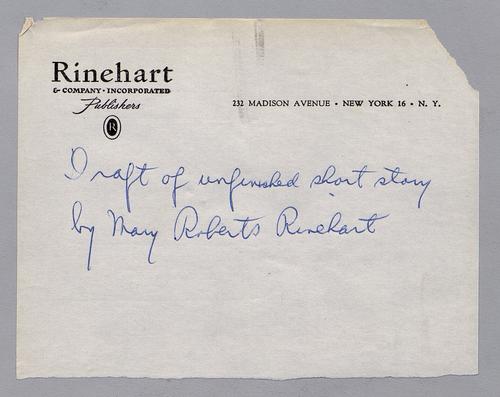 Rinehart
& COMPANY • INCORPORATED
Publishers
R
232 MADISON AVENUE • NEW YORK 16 • N. Y.
Draft of unfinished short story
by Mary Roberts Rinehart